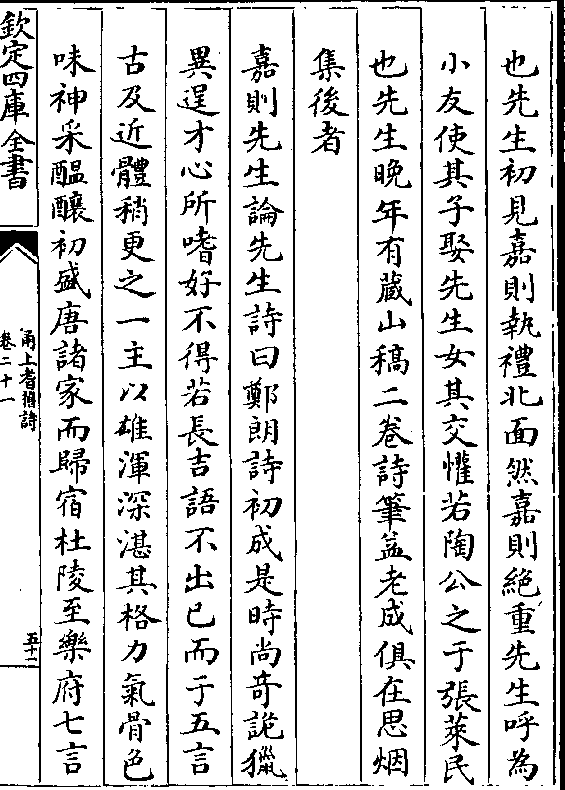 也先生初見嘉則執禮北面然嘉則絶重先生呼為
小友使其子娶先生女其交懽若陶公之于張萊民
也先生晚年有蔵山稿二卷詩筆益老成俱在思烟
集後者
嘉則先生論先生詩曰鄭朗詩初成是時尚竒詭獵
異逞才心所嗜好不得若長吉語不出已而于五言
古及近體稍更之一主以雄渾深湛其格力氣骨色
味神采醖釀初盛唐諸家而歸宿杜陵至樂府七言
欽定四庫全書
甬上耆舊詩
卷二十一
五十二